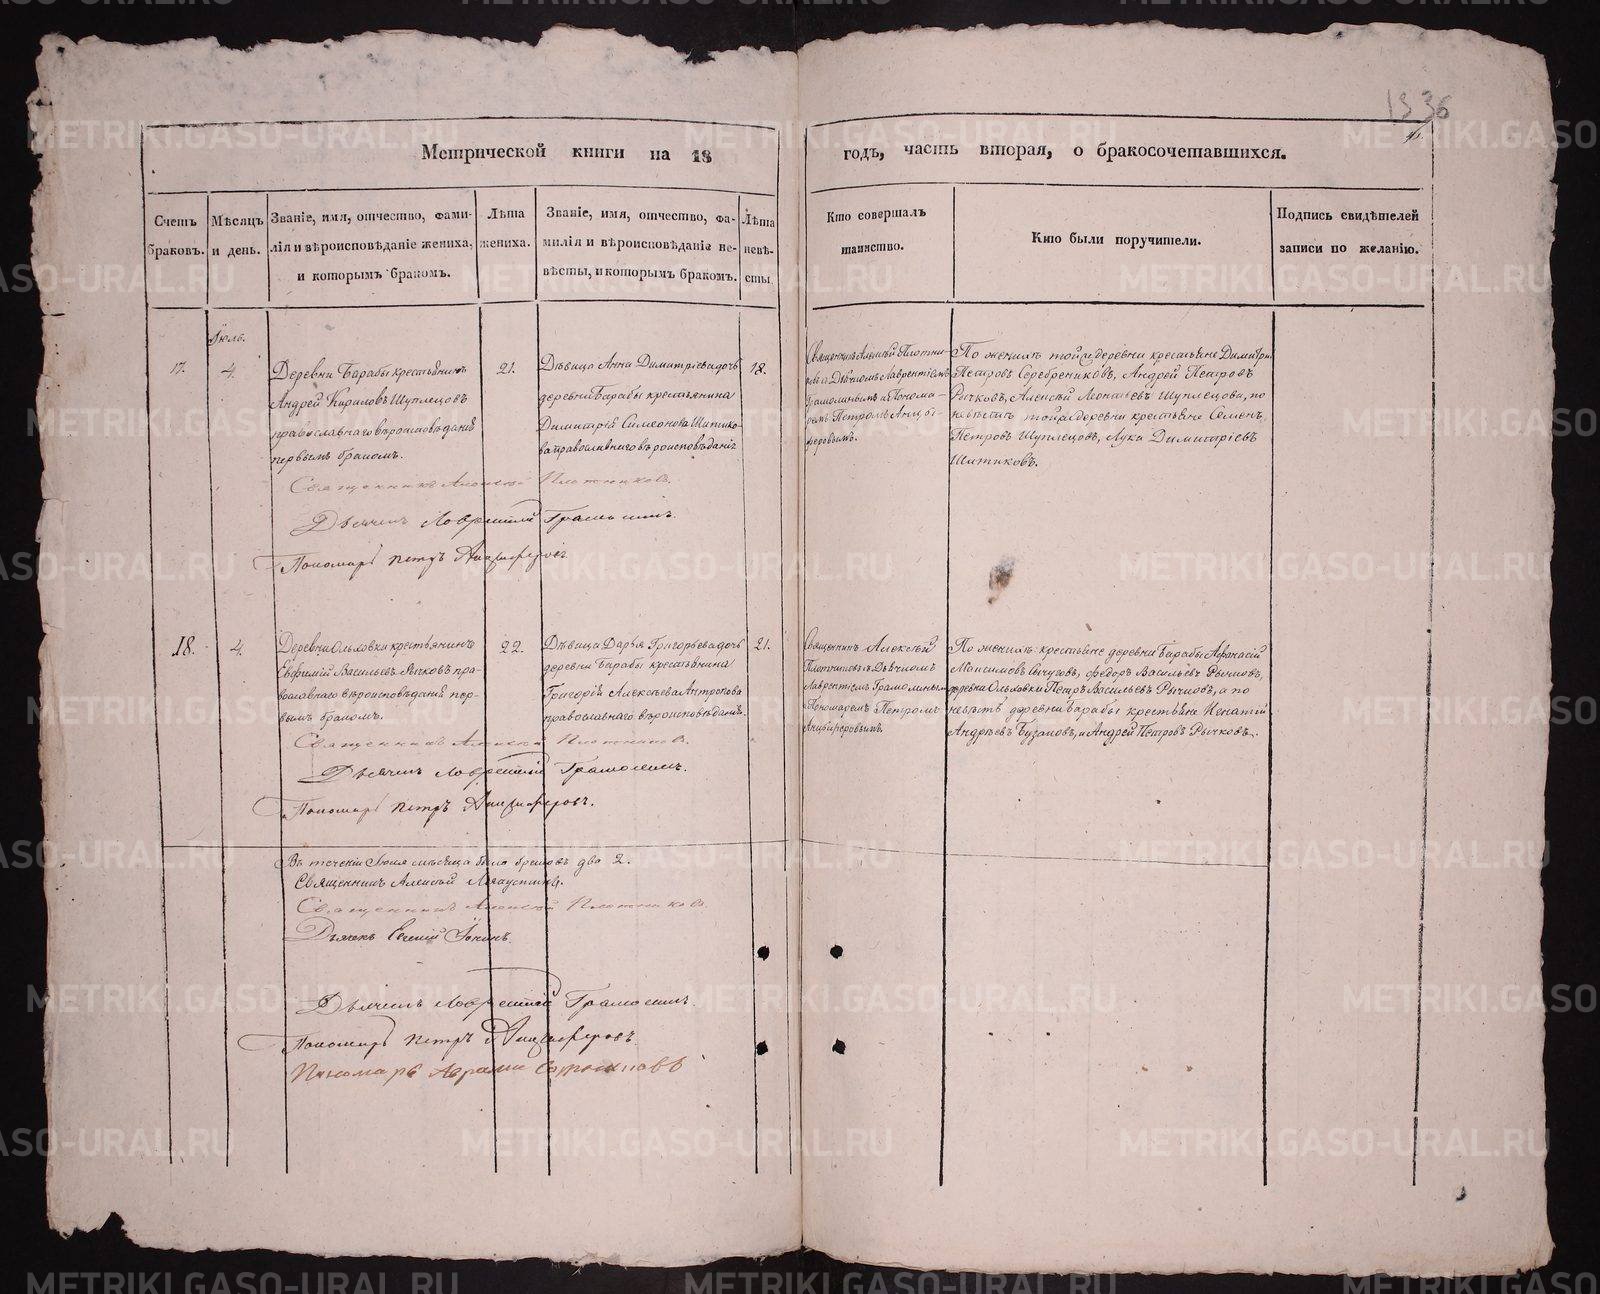 13 36
Метрической книги на 18
годъ, часть вторая, о бракосочетавшихся.
Счетъ браковъ.
Мѣсяцъ и день.
Званіе, имя, отчество, фами-
лія и вѣроисповѣданіе жениха,
и которымъ бракомъ.
Лѣта жениха.
Званіе, имя, отчество, фа-
милія и вѣроисповѣданіе не-
вѣсты, и которымъ бракомъ.
Лѣта невѣ-
сты.
Кто совершалъ
таинство.
Кто были поручители.
Подпись свидѣтелей
записи по желанію.
Июль.
17.
4.
Деревни Барабы крестьянинъ
Андрей Кириловъ Шуплецовъ
православнаго вѣроисповѣданія
первымъ бракомъ.
21.
Дѣвица Анна Димитріева дочь
деревни Барабы крестьянина
Димитрія Симеонова Шитико-
ва православнаго вѣроисповѣданія
18.
Священникъ Алексѣй Плотни-
ковъ съ Дьячкомъ Лаврентіемъ
Грамолинымъ и Понома-
ремъ Петромъ Анцы-
феровымъ.
По женихѣ той же деревни крестьяне Димитрій
Петровъ Серебрениковъ, Андрей Петровъ
Рычковъ, Алексѣй Леонтьевъ Шуплецовъ, по
невѣстѣ той же деревни крестьяне Семенъ
Петровъ Шуплецовъ, Лука Димитріевъ
Шитиковъ.
Священникъ Алексѣй Плотниковъ.
Дьячекъ Лаврентій Грамолинъ.
Пономарь Петръ Анцыферовъ
18.
4.
Деревни Ольховки крестьянинъ
Евфимій Васильевъ Рычковъ пра-
вославнаго вѣроисповѣданія пер-
вымъ бракомъ.
22.
Дѣвица Дарья Григорьева дочь
деревни Барабы крестьянина
Григорія Алексѣева Антропова
православнаго вѣроисповѣданія.
21.
Священникъ Алексѣй
Плотниковъ съ Дьячкомъ
Лаврентіемъ Грамолинымъ
Пономаремъ Петромъ
Анцыферовымъ.
По женихѣ крестьяне деревни Барабы Афанасій
Максимовъ Сычуговъ, Федоръ Васильевъ Рычковъ,
деревни Ольховки Петръ Васильевъ Рычковъ, а по
невѣстѣ деревни Барабы крестьяне Игнатій
Андрѣевъ Бузановъ, и Андрей Петровъ Рычковъ.
Священникъ Алексѣй Плотниковъ.
Дьячекъ Лаврентій Грамолинъ.
Пономарь Петръ Анцыферовъ.
Въ теченіи Июля мѣсяца было браковъ два 2.
Священникъ Алексѣй
Священникъ Алексѣй Плотниковъ.
Дьячекъ Евгеній
Дьячекъ Лаврентій Грамолинъ.
Пономарь Петръ Анцыферовъ.
Пономарь
METRIKI.GASO-URAL.RU